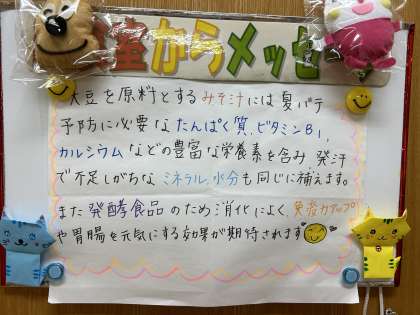 室からメッセ
大豆を原料とするみそ汁には夏バテ
予防に必要なたんぱく質、ビタミンB1、
カルシウムなどの豊富な栄養素を含み発汗
で不足しがちなミネラル、水分も同じに補えます。
また発酵食品のため消化によく、免疫力アップ
や胃腸を元気にする効果が期待されます